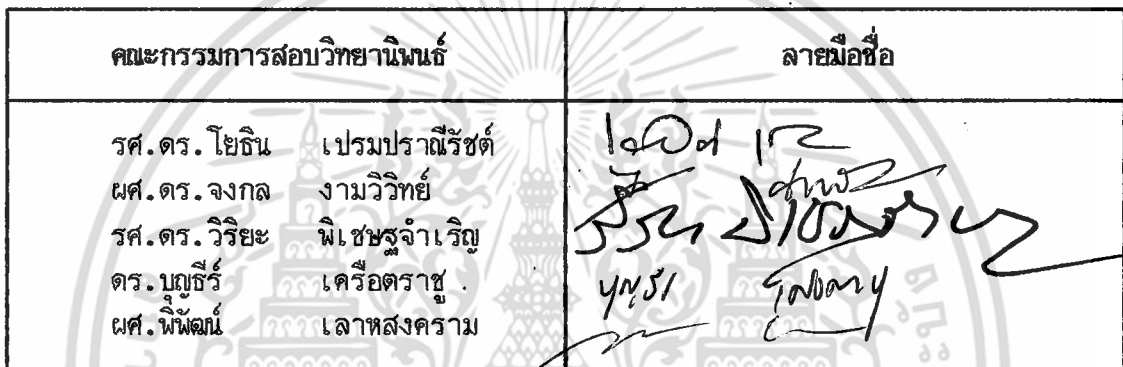 คณะกรรมการสอบวิทยานิพนธ์ ลายมือชื่อ
รศ.ดร.โยธิน เปรมปราณีรัชต์
ผศ.ดร.จงกล งามวิวิทย์
รศ.ดร.วิริยะ พิเชษฐจำเริญ
ดร.บุญธีร์ เครือตราชู
ผศ.พิพัฒน์ เลาหสงคราม